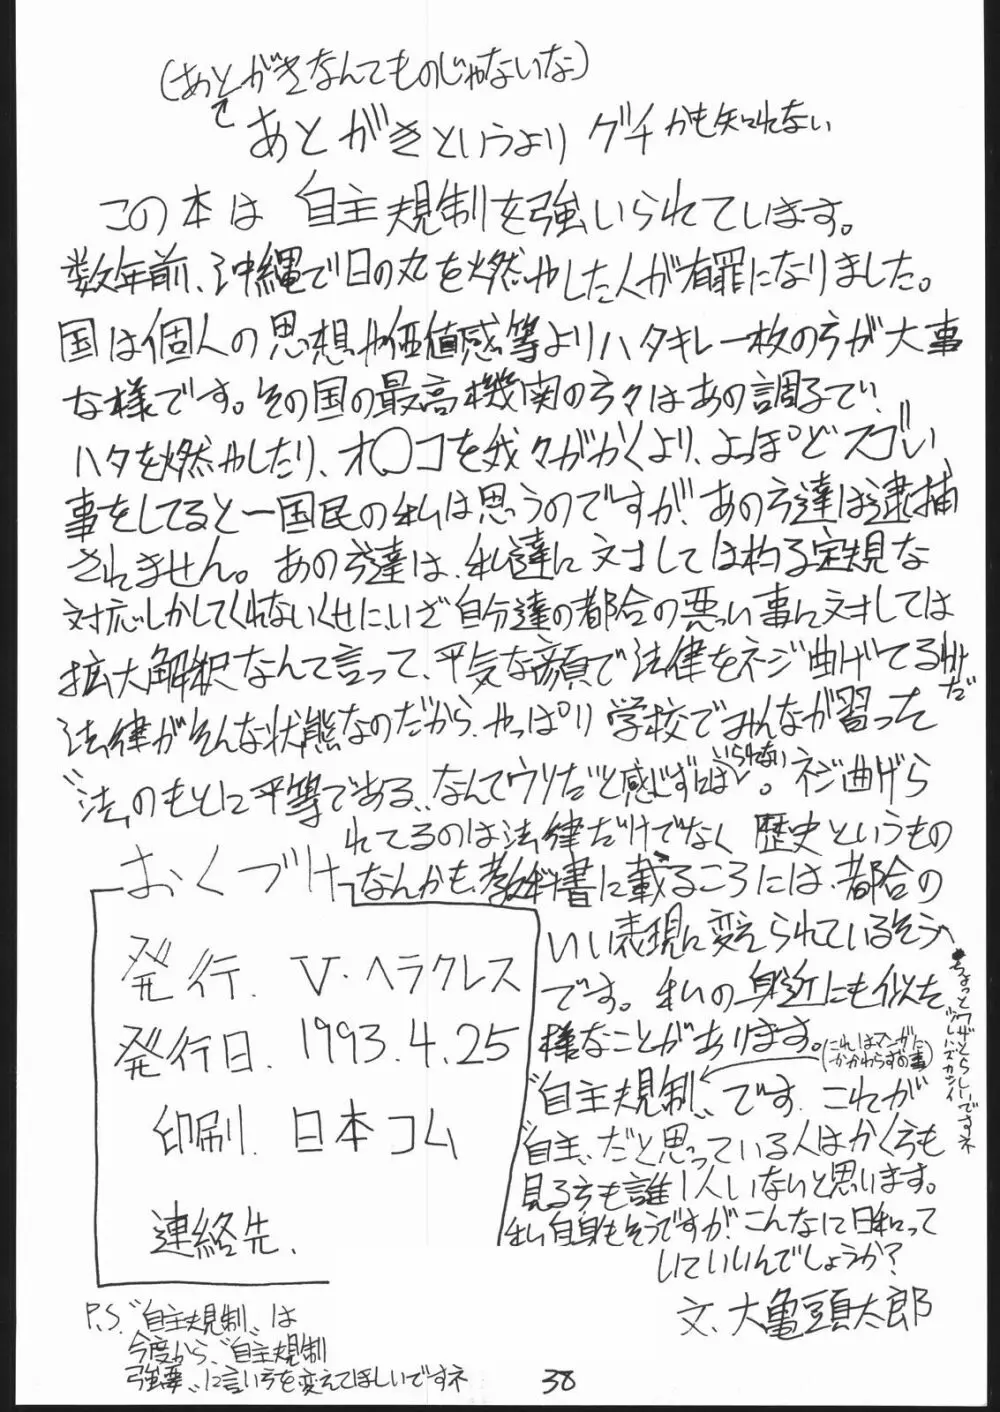 (あとがきなんてものじゃないな)
あとがきというより グチかも知れない
この本は 自主規制を強いられています。
数年前、沖縄で日の丸を燃やした人が有罪になりました。
国は個人の思想や価値感等よりハタキレ一枚の方が大事
な様です。その国の最高機関の方々はあの調子で、
ハタを燃やしたり、オ〇コを我々がかくより、よっぽどスゴい
事をしてると一国民の私は思うのですが、あの方達は逮捕
されません。あの方達は、私達に対しては杓子定規な
対応しかしてくれないくせに、いざ自分達の都合の悪い事に対しては
拡大解釈なんて言って、平気な顔で法律をネジ曲げてるわけだ
法律がそんな状態なのだから、やっぱり学校でみんなが習った
〝法のもとに平等である〟なんてウソだと感じずにはいられない。ネジ曲げら
れてるのは法律だけでなく歴史というもの
なんかも、教科書に載るころには、都合の
いい表現に変えられているそう
です。私の身近にも似た
様なことがあります。
(これはマンガに
かかわらずの事)
〝自主規制〟です。これが
〝自主〟だと思っている人はかく方も
見る方も誰1人いないと思います。
私自身もそうですが、こんなに日和って
いていいんでしょうか?
ちょっとワザとらしいですネ
文、大亀頭太郎
おくづけ
発行. V・ヘラクレス
発行日. 1993.4.25
印刷. 日本コム
連絡先.
P.S.〝自主規制〟は
今度から、〝自主規制
強要〟に言い方を変えてほしいですネ
38